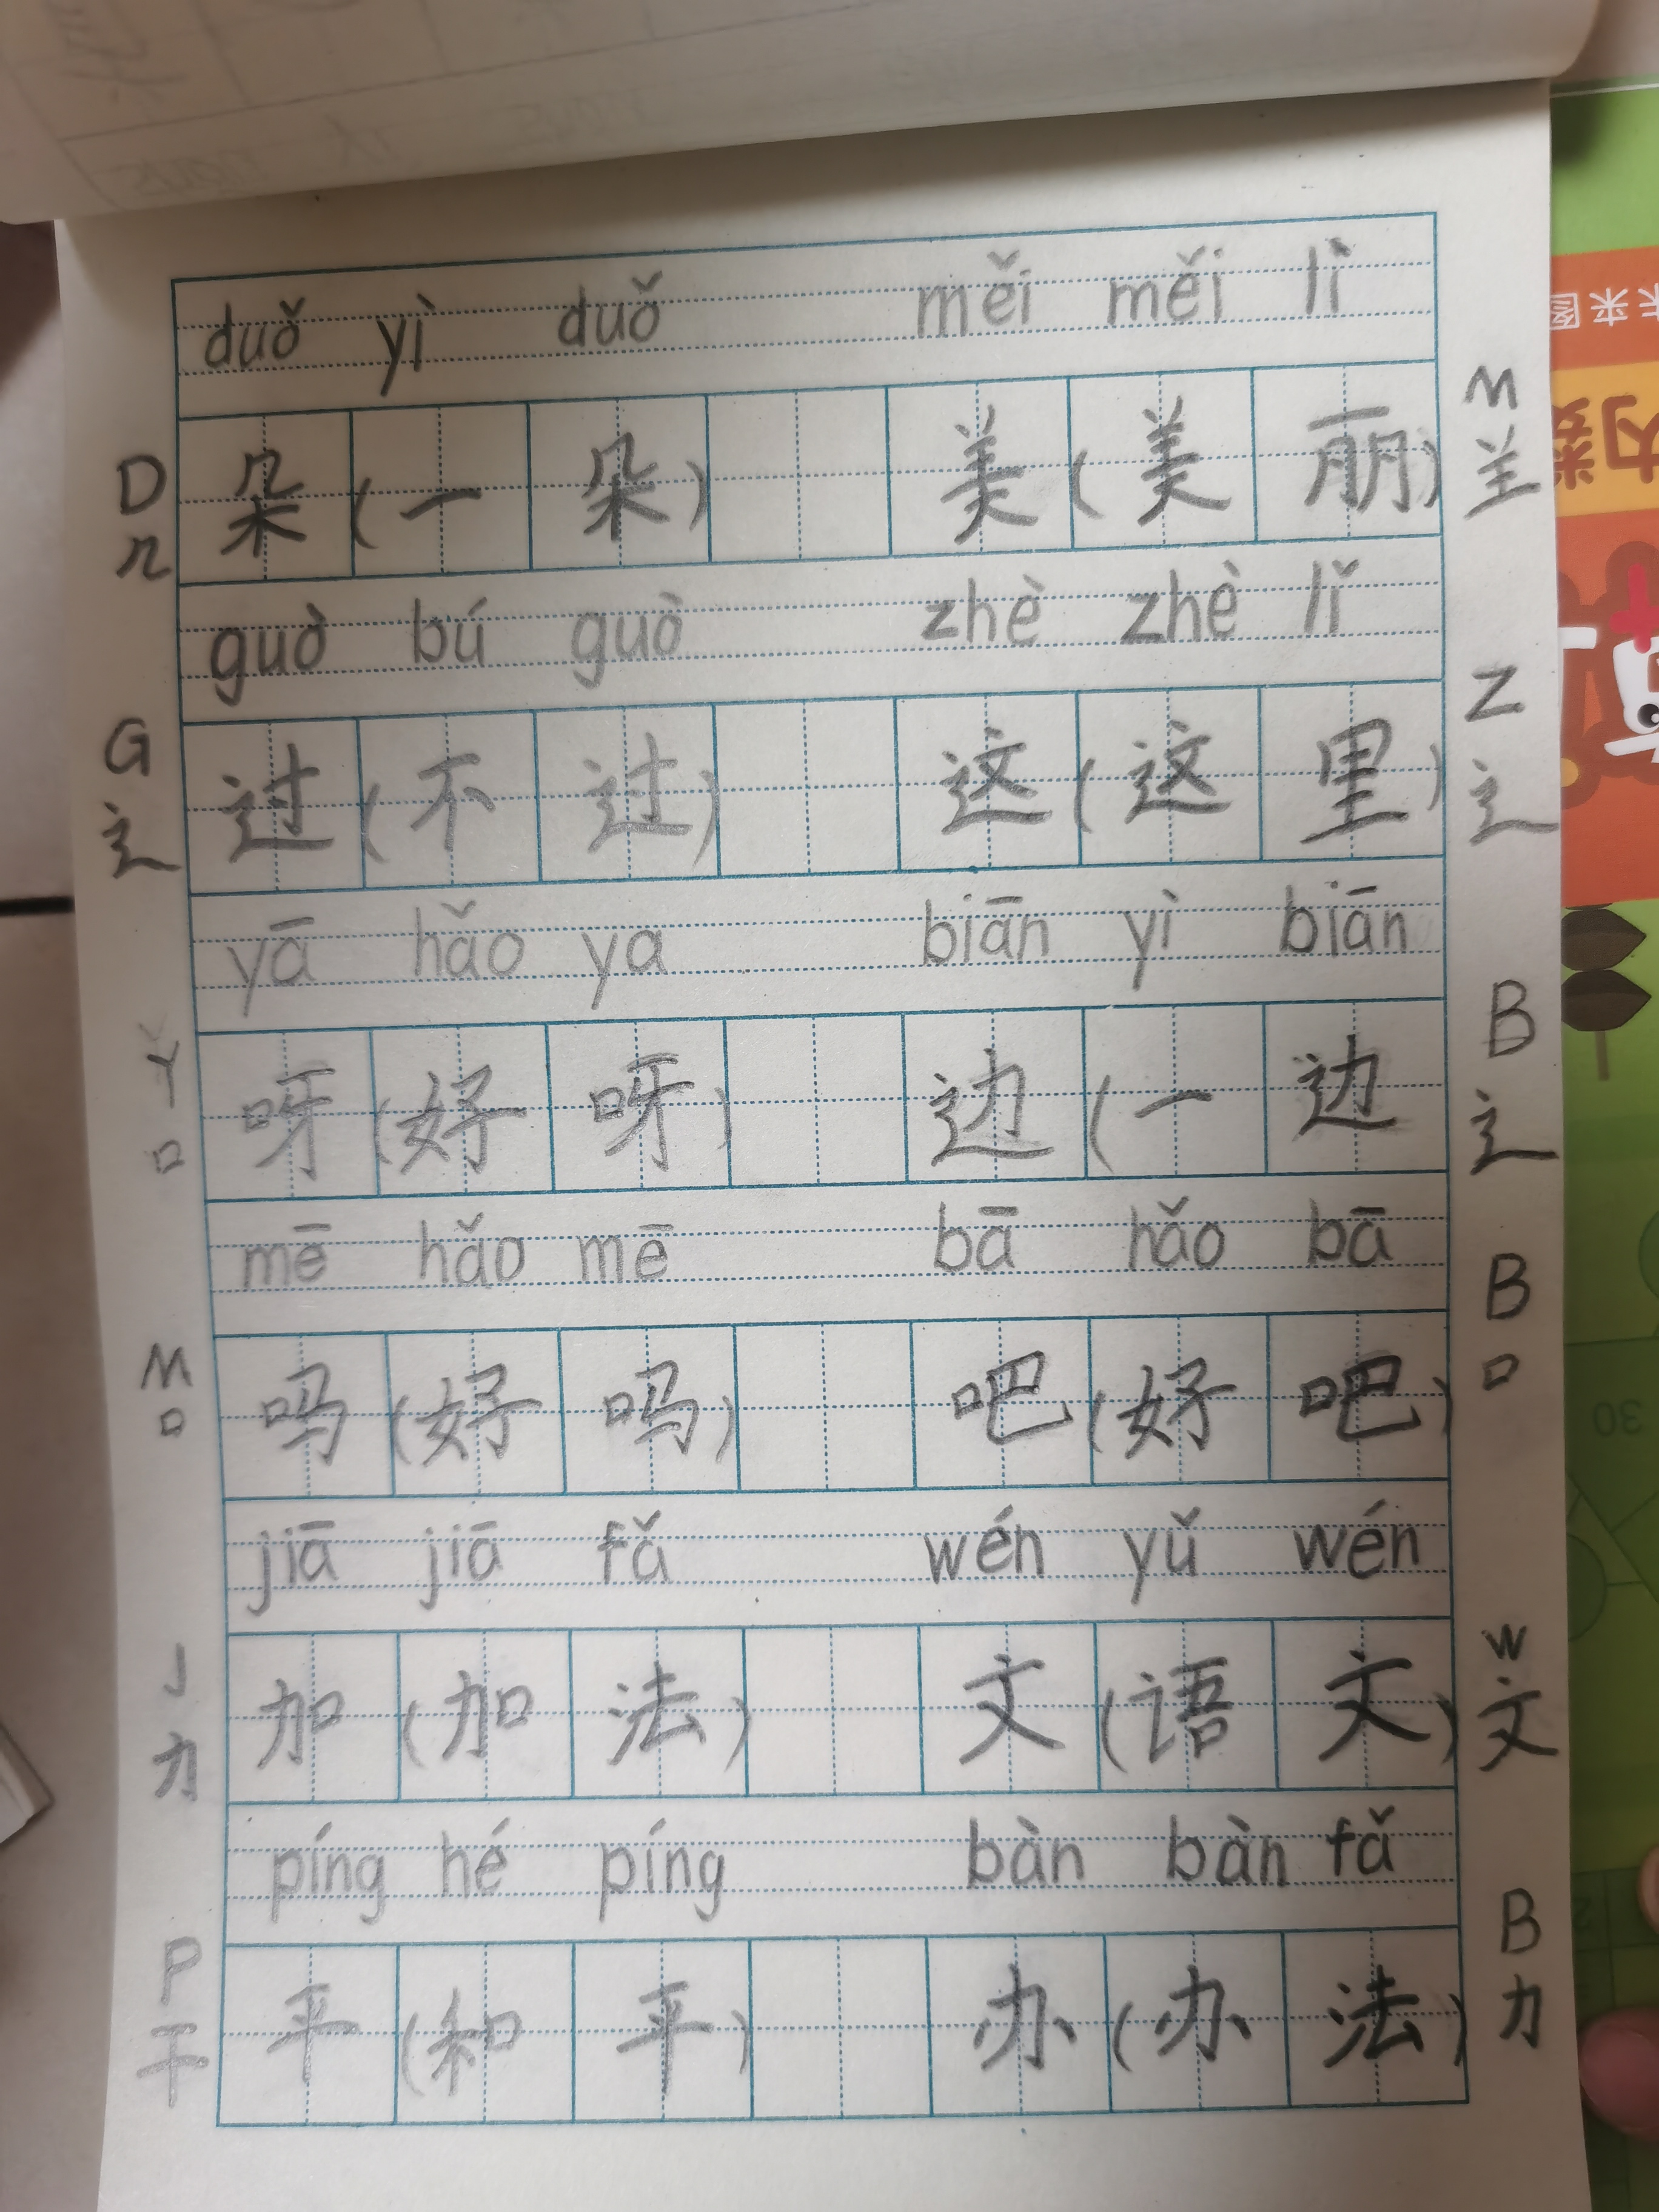 duǒ yì duǒ měi měi lì
D 朵 (一 朵) 美 (美 丽) M
几 𦍌
guò bú guò zhè zhè lǐ
G 过 (不 过) 这 (这 里) Z
辶 辶
yā hǎo ya biān yì biān
Y 呀 (好 呀) 边 (一 边 B
口 辶
mē hǎo mē bā hǎo bā
M 吗 (好 吗) 吧 (好 吧) B
口 口
jiā jiā fǎ wén yǔ wén
J 加 (加 法) 文 (语 文) W
力 文
píng hé píng bàn bàn fǎ
P 平 (和 平) 办 (办 法) B
干 力
未来
30